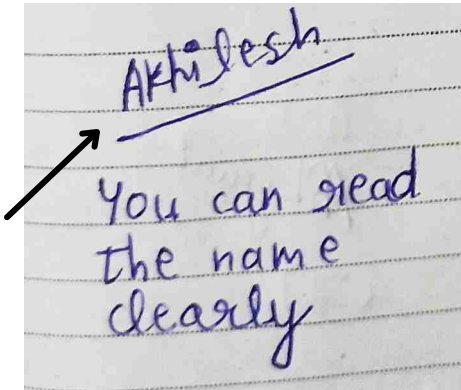 Akhilesh
You can read
the name
clearly